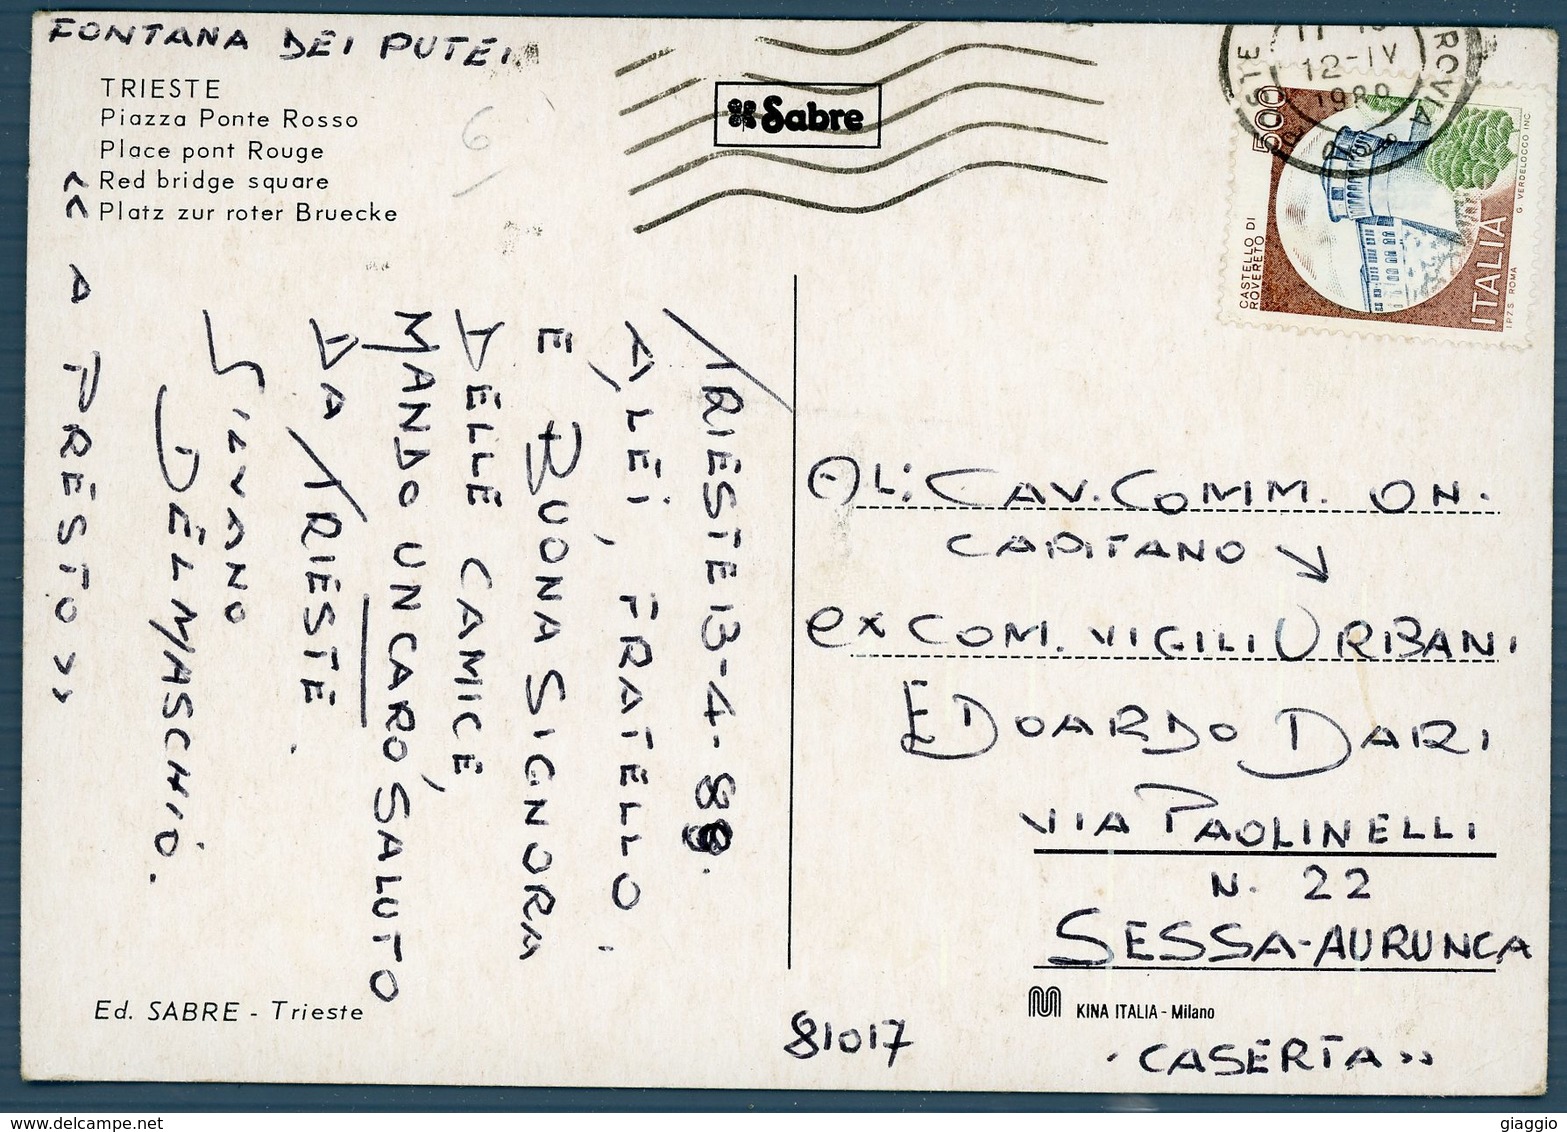 FONTANA DEI PUTEI
TRIESTE
Piazza Ponte Rosso
Place pont Rouge
Red bridge square
Platz zur roter Bruecke
Sabre
12-IV
1989
500
CASTELLO DI
ROVERETO
ITALIA
G. VERDELOCCO INC.
I.P.Z.S. ROMA
TRIESTE 13-4-89.
A LEI, FRATELLO,
E BUONA SIGNORA
DELLE CAMICE,
MANDO UN CARO, SALUTO
DA TRIESTE.
SILVANO
DELMASCHIO.
<< A PRESTO >>
CAV. COMM. ON.
CAPITANO
ex COM. VIGILI URBANI
EDOARDO DARI
VIA PAOLINELLI
N. 22
SESSA-AURUNCA
Ed. SABRE - Trieste
KINA ITALIA - Milano
81017
CASERTA
giaggio